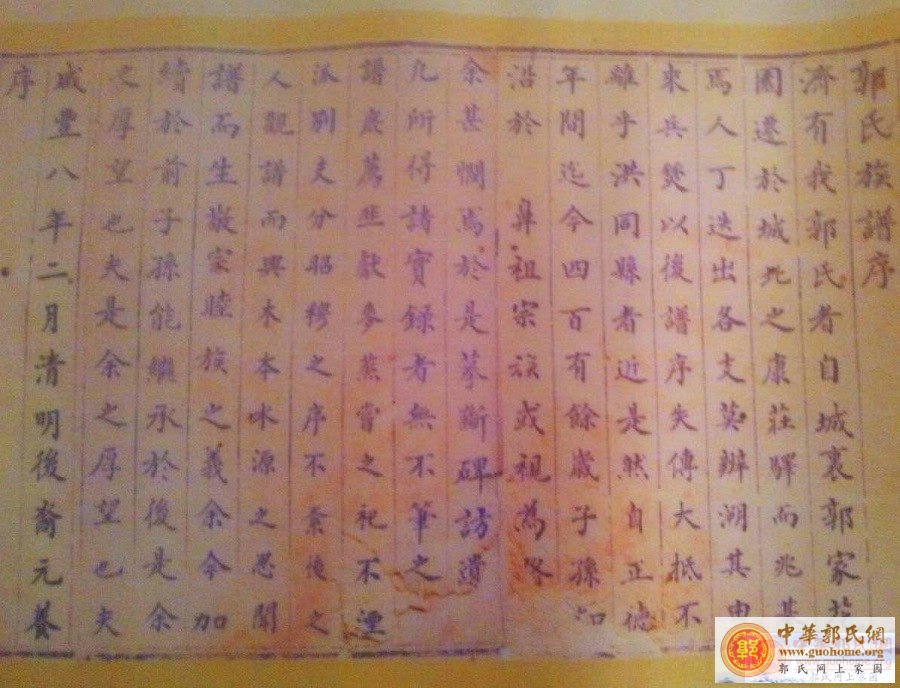 郭氏族譜序
濟有我郭氏者自城裏郭家花
園遷於城北之康莊驛而兆其
焉人丁迭出各支莫辦溯其由
來兵燹以後譜序失傳大抵不
離乎洪同縣者近是然自正德
年間迄今四百有餘歲子孫
沿於鼻祖宗族或視為
余甚憫焉於是摹斷碑訪遺
凡所得諸實録者無不筆之
譜庶薦歆蒸嘗之祀不湮
派別支分昭穆之序不紊後之
人觀譜而興木本水源之思閱
譜而生敬宗睦族之義余今加
續於前子孫能繼承於後是余
之厚望也夫是余之厚望也夫
咸豐八年二月清明後裔元養
序
中華郭氏網
www.guohome.org
郭氏网上家园